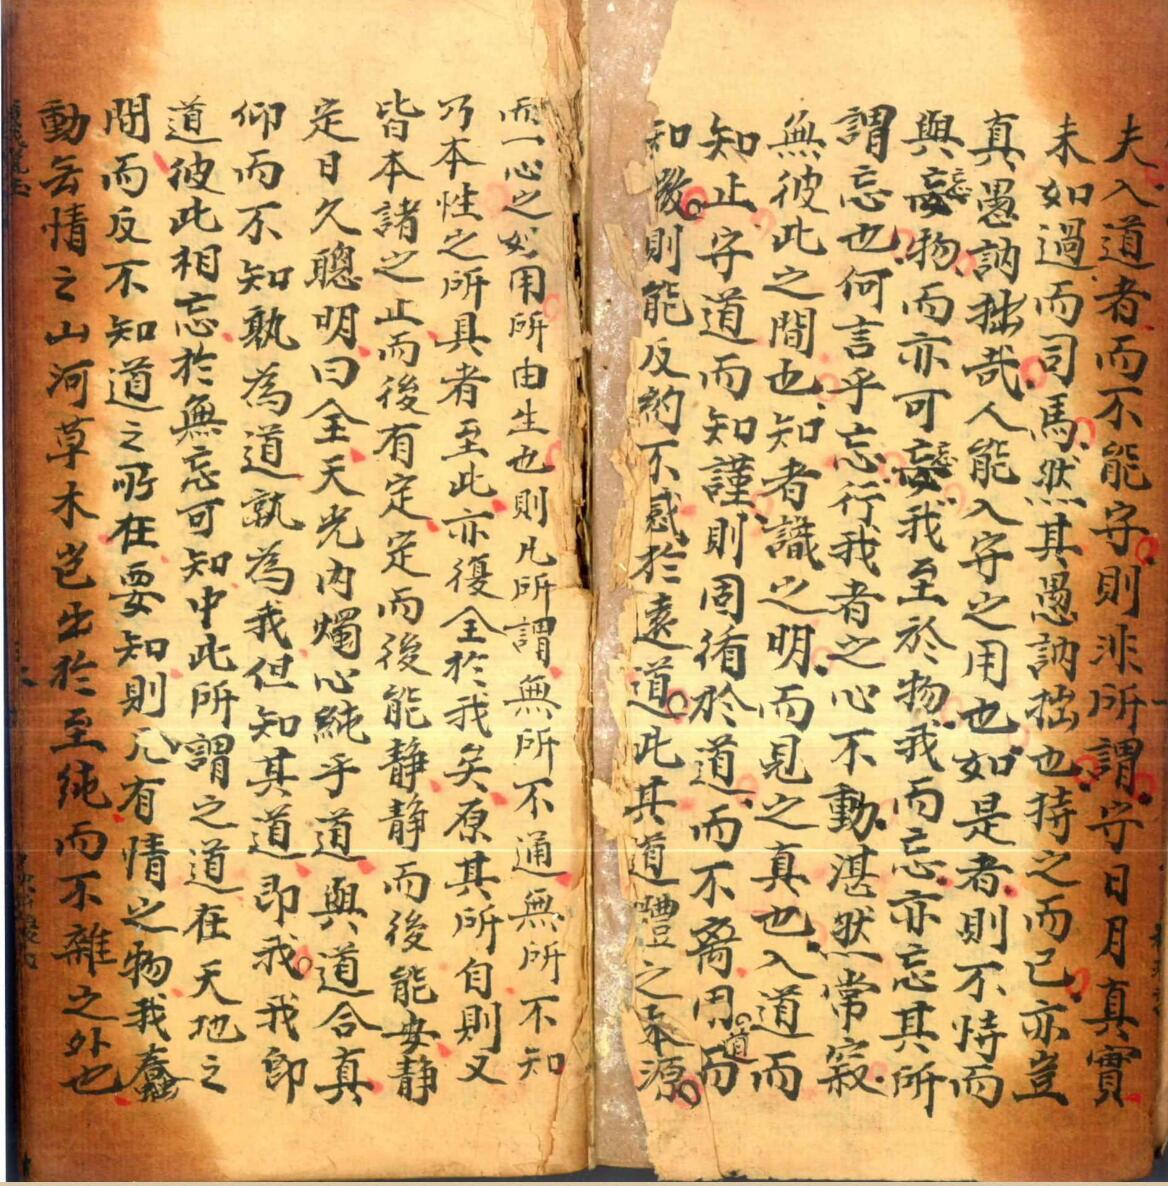 夫入道者而不能守則非所謂守日月真實
未如過而司馬然其愚訥拙也持之而已亦豈
真愚訥拙哉人能入守之用也如是者則不恃而
與忘物而亦可忘我至於物我而忘亦忘其所
謂忘也何言乎忘行我者之心不動湛然常寂
無彼此之間也知者識之明而見之真也入道而
知止守道而知謹則固循於道而不离用道而
和微則能反約不惑於遠道此其道體之本源
而一心之妙用所由生也則凡所謂無所不通無所不知
乃本性之所具者至此亦復全於我矣原其所自則又
皆本諸之止而後有定定而後能靜靜而後能安靜
定日久聰明曰全天光内燭心純乎道與道合真
仰而不知孰為道孰為我但知其道即我我即
道彼此相忘於無忘可知中此所謂之道在天地之
間而反不知道之所在要知則凡有情之物我蠢
動無情之山河草木豈出於至純而不雜之外也